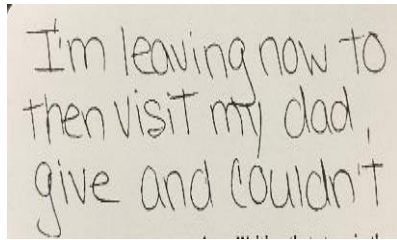 I'm leaving now to
then visit my dad,
give and couldn't